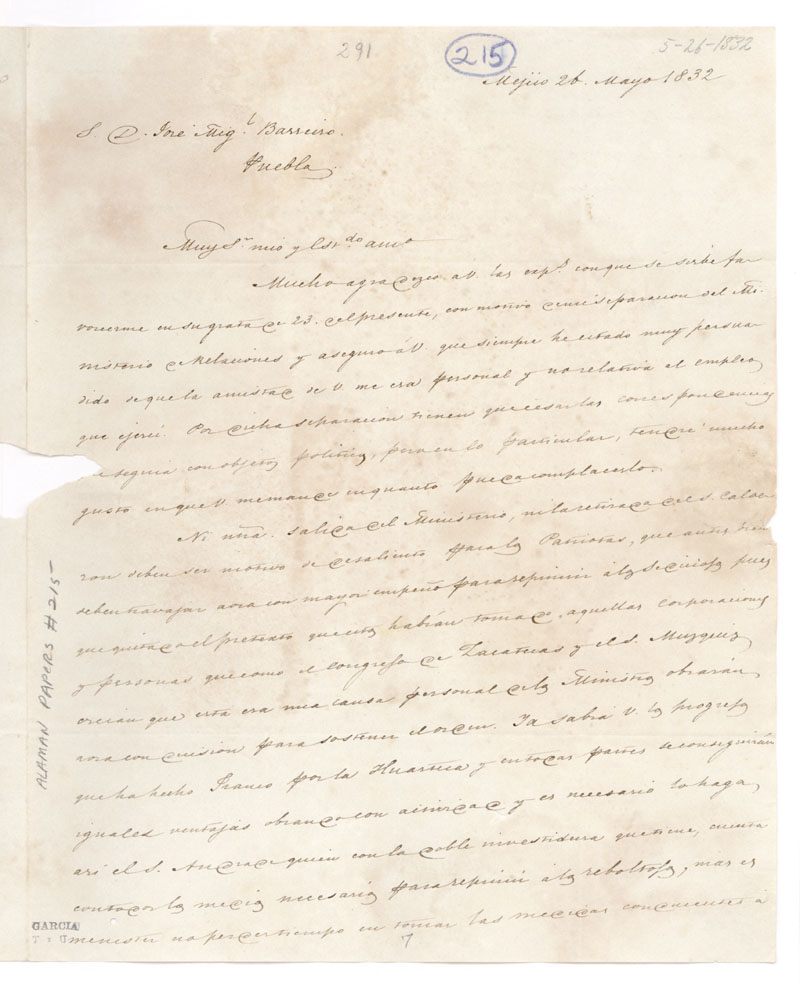 291
215
5-26-1832
Mejico 26. Mayo 1832
S. D. José Mig.l Barreiro.
Puebla
Muy S.r mio y Est.do amo
Mucho agradezco á V. las esp.s con que se sirbe fa-
vorecerme en su grata de 23. del presente, con motivo de mi separacion del Mi-
nisterio de Relaciones y aseguro á V. que siempre he estado muy persua-
dido de que la amistad de V. me era personal y no relativa al empleo
que ejercí. Por dicha separacion tienen que cesar las correspondencias
seguia con objetos politicos, pero en lo particular, tendré mucho
gusto en que V. me mande en quanto pueda complacerlo.
Ni nña. salida del Ministerio, ni la retirada del S. Calde-
ron deben ser motivo de desaliento para los Patriotas, que antes bien
deben travajar aora con mayor empeño para reprimir á los sediciosos pues
que quitado el pretexto que estos habian tomado, aquellas corporaciones
y personas que como el Congreso de Zacatecas y el S. Muzquiz
creian que esta era una causa personal de los Ministros obrarán
aora con decision para sostener el orden. Ya sabrá V. los progresos
que ha hecho Franco por la Huasteca y en todas partes se conseguirán
iguales ventajas obrando con actividad y es necesario lo haga
asi el S. Andrade quien con la doble investidura que tiene, cuenta
con todos los medios necesarios para reprimir á los reboltosos, mas es
menester no perder tiempo en tomar las medidas conducentes á
ALAMAN PAPERS #215
GARCIA
7